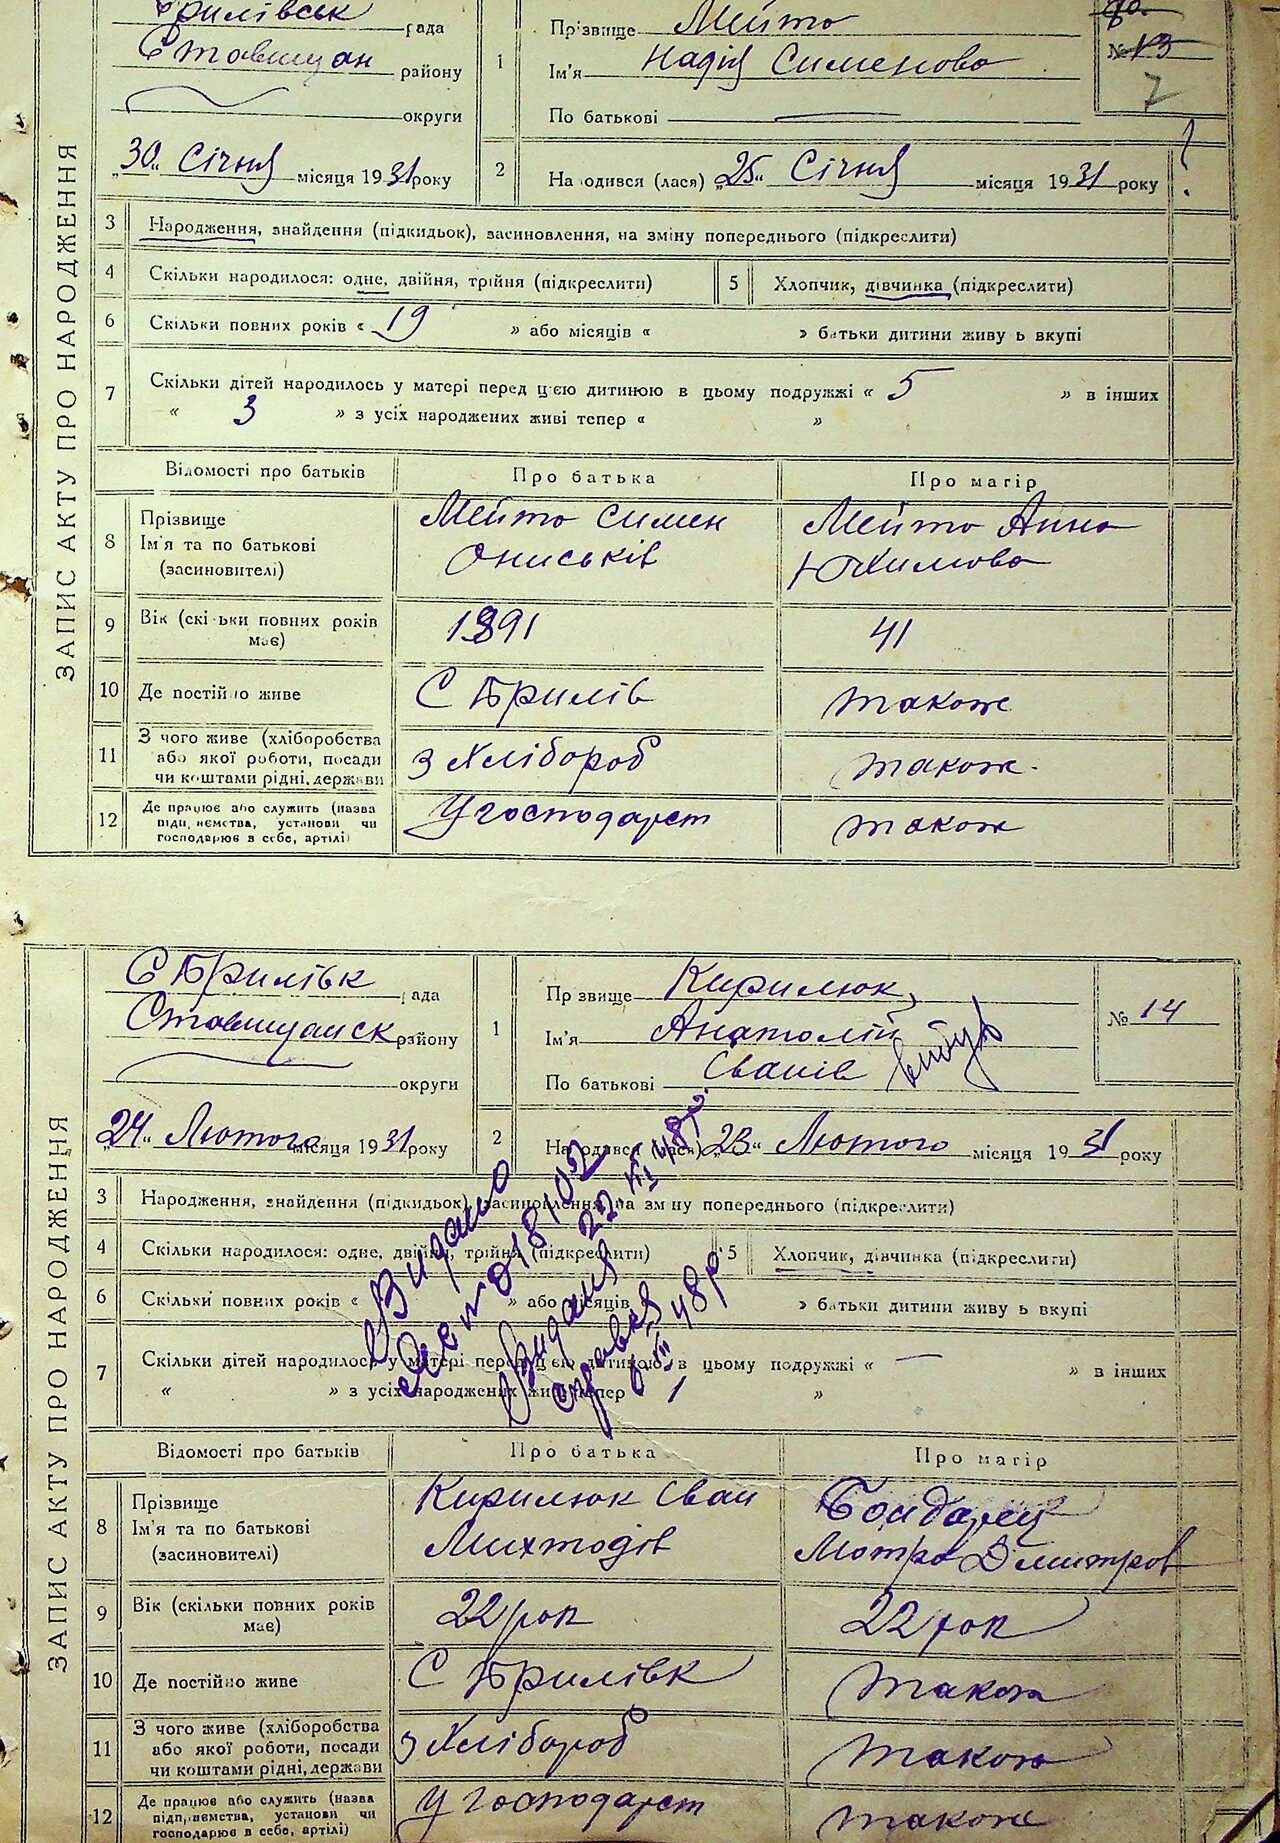 ЗАПИС АКТУ ПРО НАРОДЖЕННЯ
рада
Ставищан району
округи
„30“ Січня місяця 1931 року
1
Прізвище Мейто
Ім'я Надія Сименова
По батькові
№ 13
7
2 На одився (лася) „25“ Січня місяця 1931 року
3 Народження, знайдення (підкидьок), засиновлення, на зміну попереднього (підкреслити)
4 Скільки народилося: одне, двійня, трійня (підкреслити)
5 Хлопчик, дівчинка (підкреслити)
6 Скільки повних років « 19 » або місяців « » батьки дитини живу ь вкупі
7 Скільки дітей народилось у матері перед цією дитиною в цьому подружжі « 5 » в інших
« 3 » з усіх народжених живі тепер « »
Відомості про батьків Про батька Про матір
8 Прізвище Ім'я та по батькові (засиновителі) Мейто Симен Ониськів Мейто Анна Юхимова
9 Вік (скі ьки повних років має) 1891 41
10 Де постійно живе С Брилів також
11 З чого живе (хліборобства або якої роботи, посади чи коштами рідні, держави З Хлібороб також
12 Де працює або служить (назва підп, иємства, установи чи господарює в себе, артілі) У господарст також
ЗАПИС АКТУ ПРО НАРОДЖЕННЯ
С Брилівк рада
Ставищанск району
округи
„24“ Лютого місяця 1931 року
1
Пр звище Кирилюк,
Ім'я Анатолій
По батькові Іванів
№ 14
2 На одився (лася) „23“ Лютого місяця 1931 року
3 Народження, знайдення (підкидьок), засиновлення, на зміну попереднього (підкреслити)
4 Скільки народилося: одне, двійня, трійня (підкреслити)
5 Хлопчик, дівчинка (підкреслити)
6 Скільки повних років « » або місяців » батьки дитини живу ь вкупі
7 Скільки дітей народилось у матері перед цією дитиною в цьому подружжі « — » в інших
« » з усіх народжених живі тепер »
Видано
22 VI 48р.
Видана
справка
6 VII 48р
Відомості про батьків Про батька Про матір
8 Прізвище Ім'я та по батькові (засиновителі) Кирилюк Іван Бондарец Мотра Дмитров
9 Вік (скільки повних років має) 22 рок 22 рок
10 Де постійно живе С Брилівк також
11 З чого живе (хліборобства або якої роботи, посади чи коштами рідні, держави З Хлібороб також
12 Де працює або служить (назва підприємства, установи чи господарює в себе, артілі) У господарст також